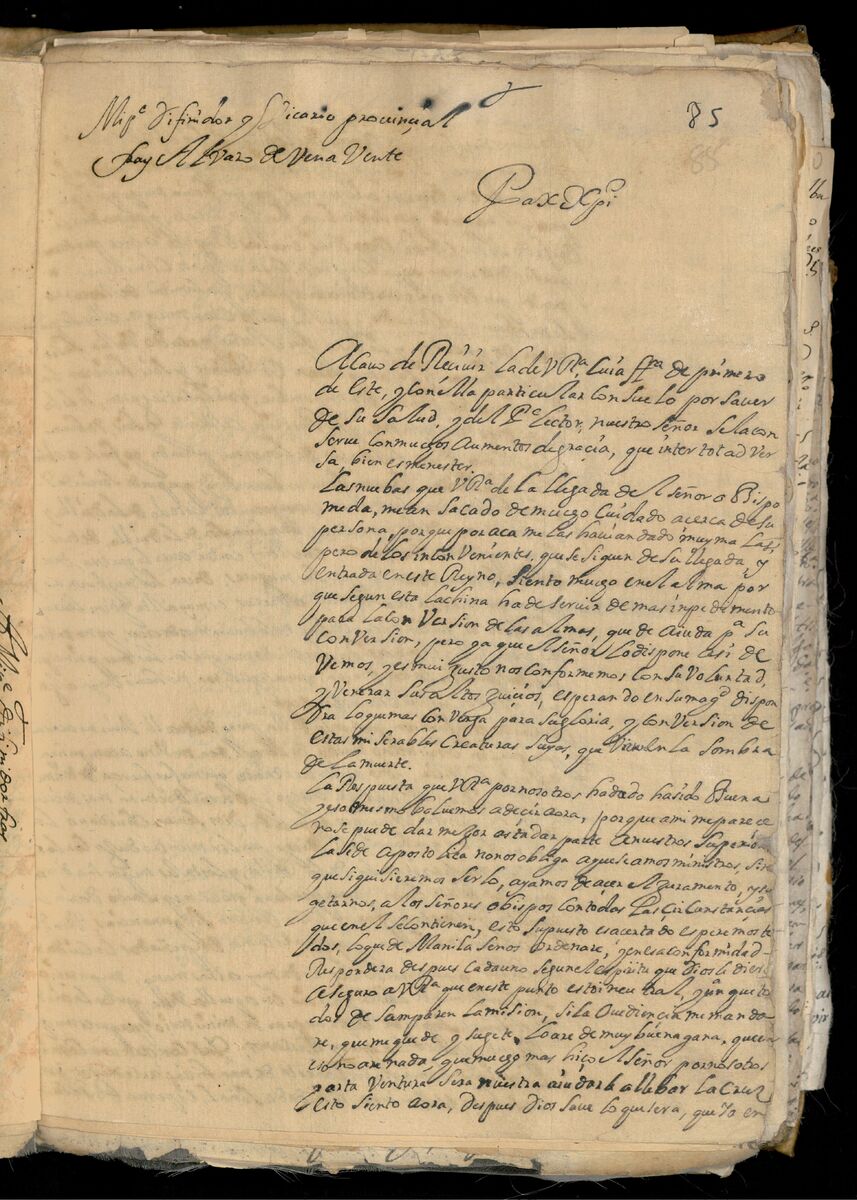 85
88
Mi Pe difinidor y Vicario provincial
fray Alvaro de Vena Vente
Pax Xpi
Acavo de Reciuir la de VRa, cuia ffra de primero
de este, y con ella particular consuelo por saver
de su salud, y del Pe Lector, nuestro señor se la con
serve con muchos aumentos de gracia, que inter tot adver
sa, bien es menester.
Las nuebas que VRa de la llegada del señor o Bispo
me da, me an sacado de mucho Cuidado acerca de su
persona, porque por aca me las hauian dado muy malas,
pero de los inconvenientes, que se siguen de su llegada, y
entrada en este Reyno, siento mucho en el alma por
que segun esta la china ha de seruir de mas inpedimento
para la con Version de las almas, que de aiuda pa su
conversion, pero ya que el señor lo dispone asi de
Vemos, y es mui justo nos conformemos con su Voluntad,
y Venerar sus altos juicios, esperando en su magd dispon
dra lo que mas convenga para su gloria, y con Version de
estas miserables creaturas suyas, que viven en la sombra
de la muerte.
La Respuesta que VRa por nosotros ha dado ha sido Buena
y eso mesmo boluemos a decir aora, porque a mi me parece
no se puede dar mejor asta dar parte a nuestros superio
La sede apostolica no nos obliga a que seamos ministros, sin
que si quisieremos serlo, ayamos de acer el juramento, y su
getarnos, a los señores obispos con todas las circunstancias
que en el se contienen, esto supuesto es acertado esperemos to
dos, lo que de Manila se nos ordenare, y en esa conformidad
Respondera despues cada uno segun el espiritu que Dios le diere
aseguro a VRa que en este punto estoi neutral, y aun que to
dos desamparen la mision, si la Ouediencia me manda
re, que me quede y sugete, lo are de muy buena gana, que en
eso no are nada, que mucho mas hiço el señor por nosotros
y arta Ventura sera nuestra aiudarle a llebar la Cruz
esto siento aora, despues Dios save lo que sera, que yo en